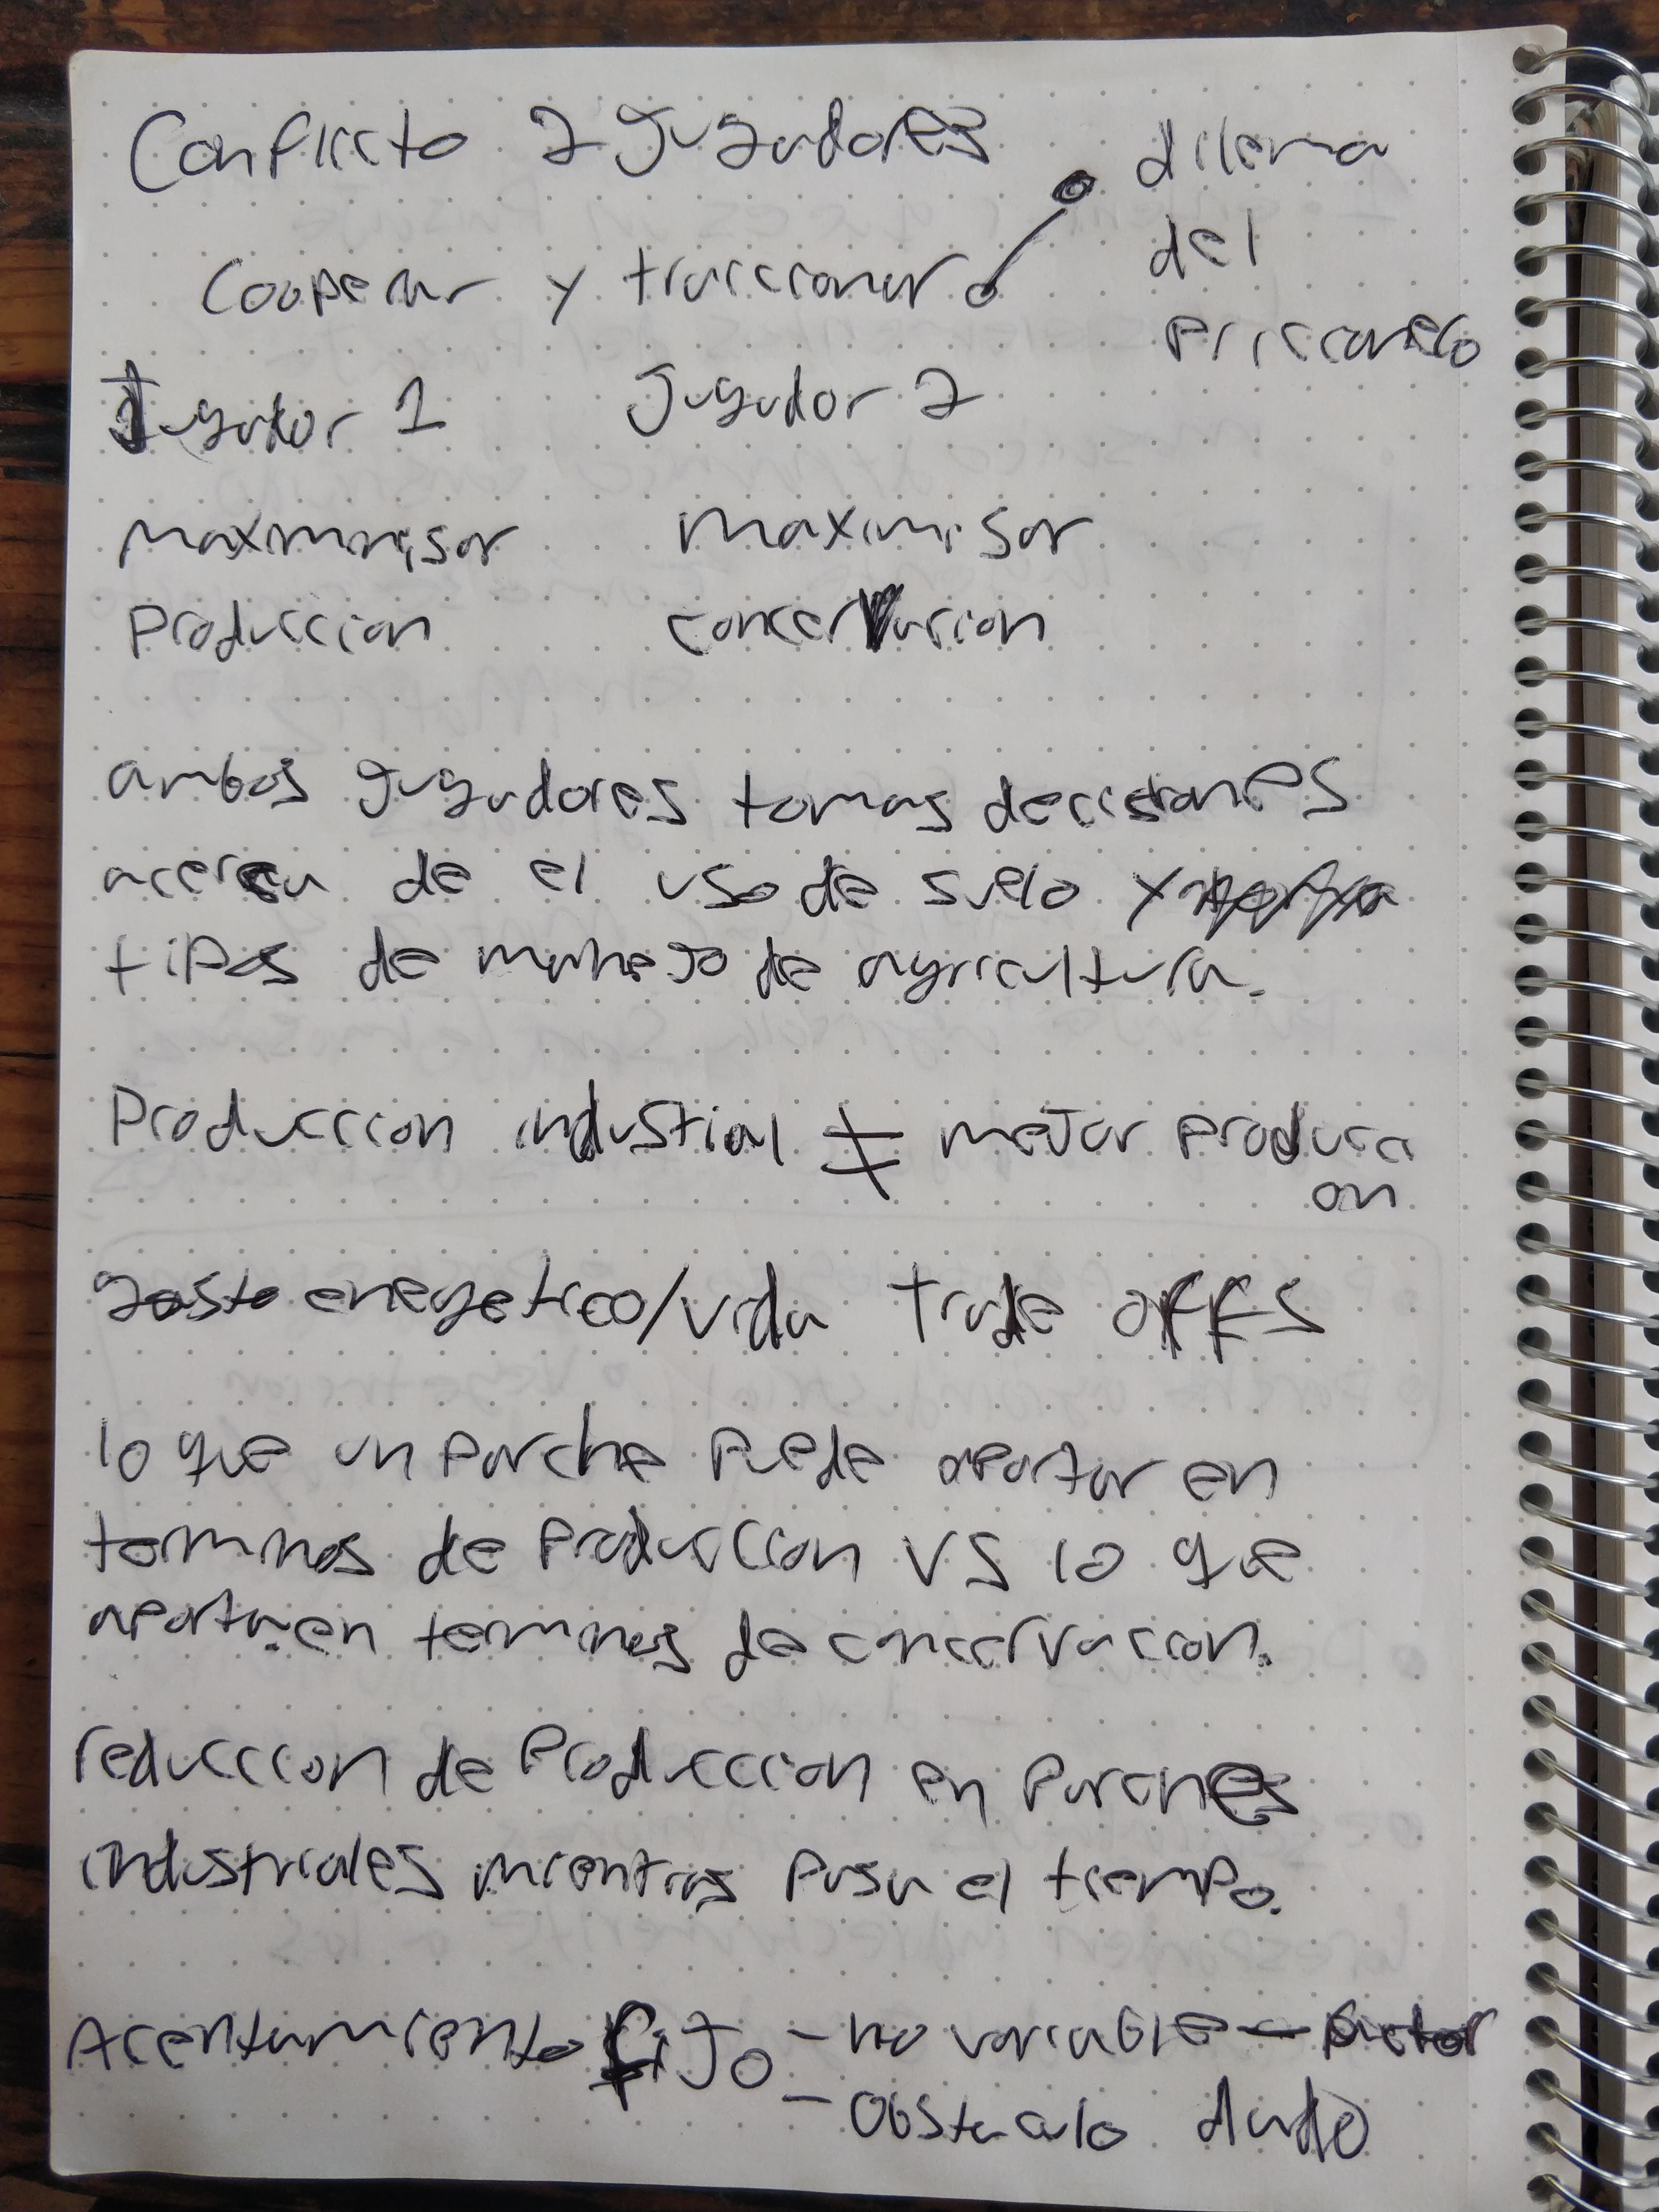 Conflicto 2 Jugadores
Cooperar y traiccionar
dilema
del
priccionero
Jugador 1 Jugador 2
maxmmisor maximisor
produccion concervacion
ambos jugadores tomas decisiones
acerca de el uso de suelo y
tipos de manejo de agricultura.
Produccion industrial ≠ mejor producci
on
gasto energetico/vida trade offs
lo que un parche puede aportar en
terminos de produccion vs lo que
aporta en terminos de concervacion.
reduccion de produccion en parches
industriales mientras pasa el tiempo.
Acentamiento fijo - no variable - factor
- obstaculo dado